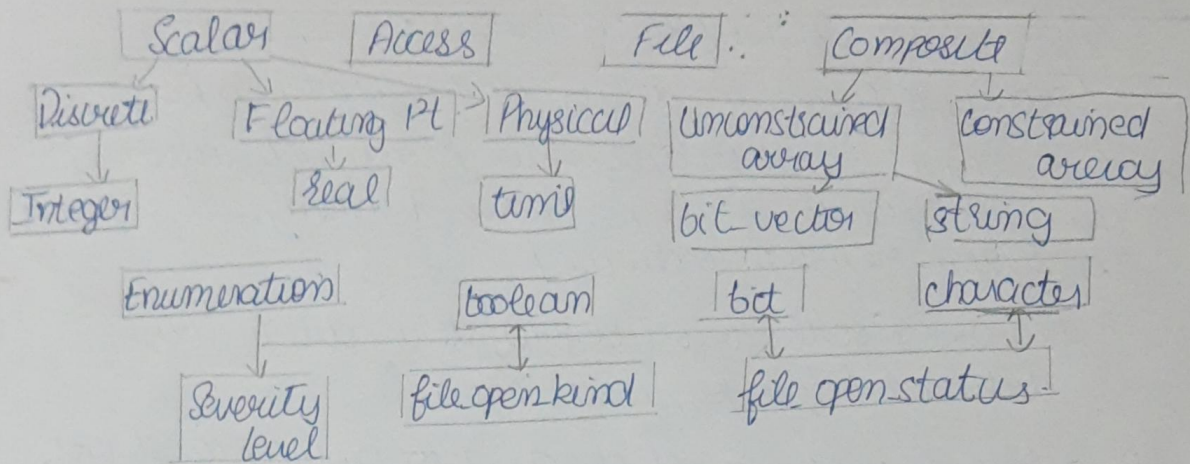 Scalar Access File .. Composite
Discrete Floating Pt Physical Unconstrained array Constrained array
Integer real time bit_vector string
Enumeration boolean bit character
Severity level file open_kind file open_status